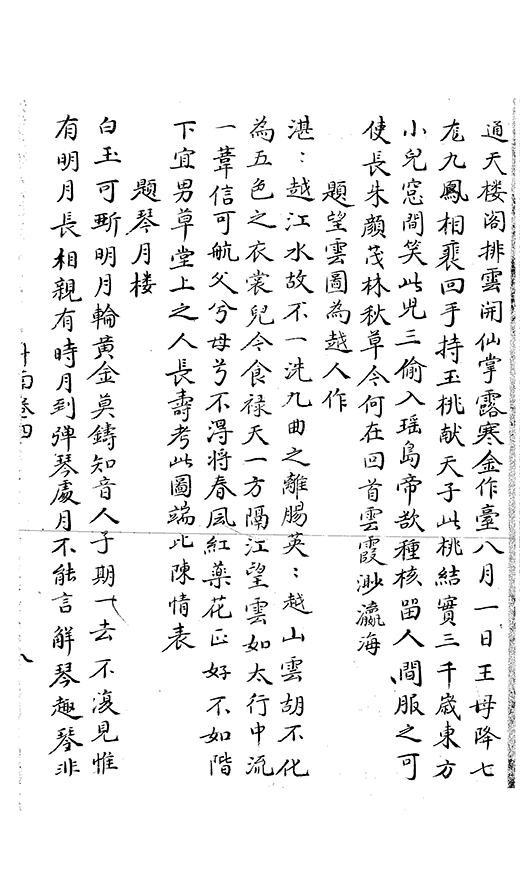 通天楼阁排雲開仙掌露寒金作臺八月一日王母降七
尨九鳳相裴回手持玉桃献天子此桃結實三千歲東方
小兒窓間笑此児三偷入瑶島帝欲種核畱人間服之可
使長朱顔茂林秋草今何在回首雲霞渺瀛海
題望雲圖為越人作
湛：越江水故不一洗九曲之離腸英：越山雲胡不化
為五色之衣裳兒今食禄天一方隔江望雲如太行中流
一葦信可航父兮母兮不淂將春風紅藥花正好不如階
下宜男草堂上之人長壽考此圖端比陳情表
題琴月楼
白玉可斲明月輪黄金莫鋳知音人子期一去不復見惟
有明月長相親有時月到弹琴處月不能言觧琴趣琴非
卷四
八